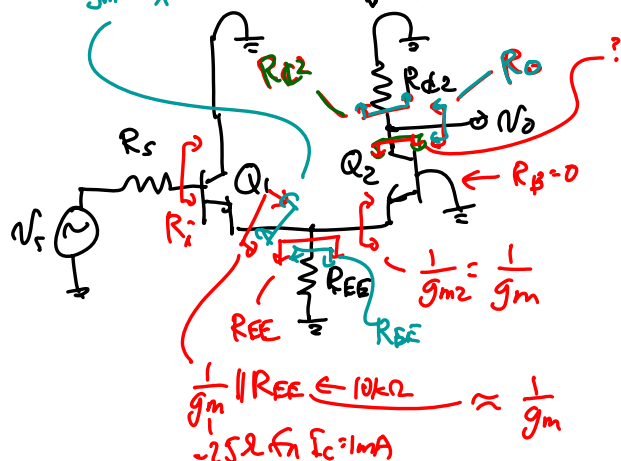 gm
?
RC2
RC2
Ro
Rs
Vo
Q1
Q2
RB=0
Vs
Ri
REE
1/gm2 = 1/gm
REE
REE
1/gm || REE ← 10kΩ ≈ 1/gm
~25Ω for IC=1mA